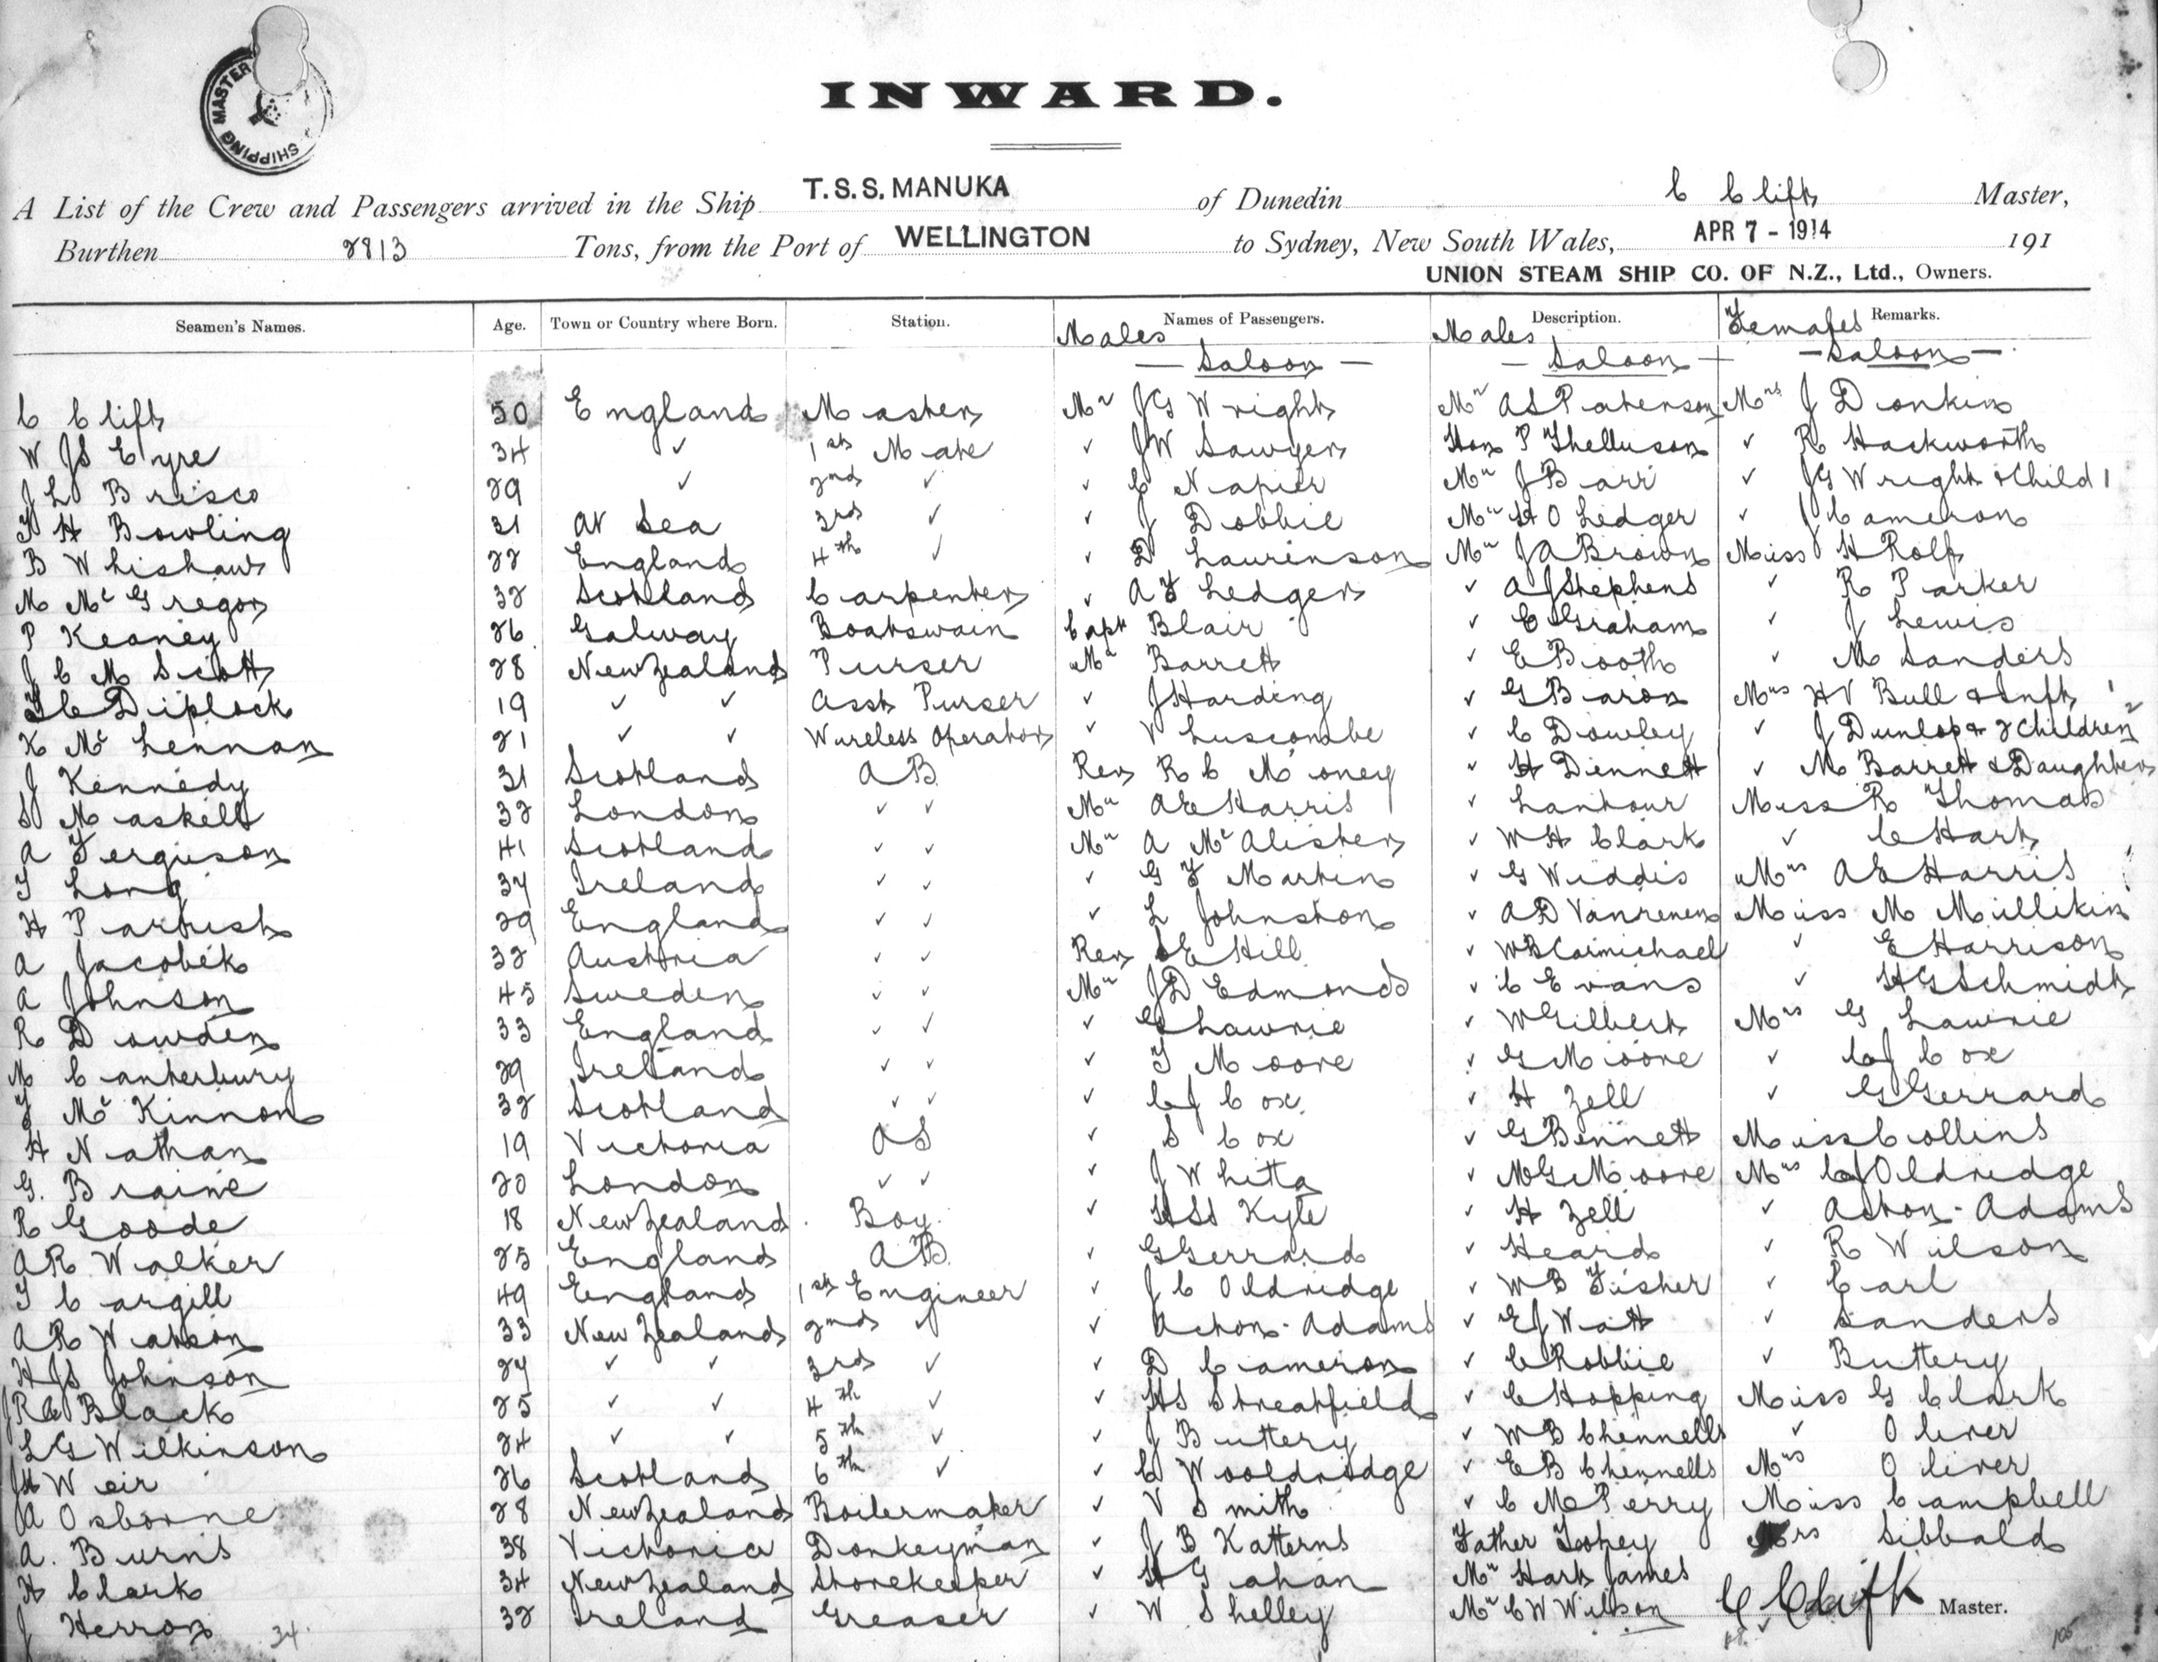 SHIPPING MASTER
INWARD.
A List of the Crew and Passengers arrived in the Ship T.S.S. MANUKA of Dunedin C Clift Master,
Burthen 2813 Tons, from the Port of WELLINGTON to Sydney, New South Wales, APR 7 - 1914 191
UNION STEAM SHIP CO. OF N.Z., Ltd., Owners.
Seamen's Names. Age. Town or Country where Born. Station. Names of Passengers. Description. Remarks.
Males Males Females
— Saloon — — Saloon — — Saloon —
C Clift 50 England Master Mr JG Wright Mr AS Paterson Mrs J Donkin
W JS Eyre 34 ✓ 1st Mate ✓ JW Sawyer Hon P Thelluson ✓ R Hackworth
J L Brisco 29 ✓ 2nd ✓ ✓ C Napier Mr J Barr ✓ JG Wright & Child 1
H Bowling 31 At Sea 3rd ✓ ✓ J Dobbie Mr H O Ledger ✓ J Cameron
B Whishaw 22 England 4th ✓ ✓ D Laurinson Mr JA Brown Miss H Rolf
M McGregor 32 Scotland Carpenter ✓ A F Ledger ✓ AJ Stephens ✓ R Parker
P Keaney 26 Galway Boatswain Capt Blair ✓ C Graham ✓ J Lewis
J C M Scott 28 New Zealand Purser Mr Barrett ✓ E Booth ✓ M Sanders
Diplock 19 ✓ ✓ Asst Purser ✓ J Harding ✓ G Baron Mrs HV Bull & Inft 1
K McLennan 21 ✓ ✓ Wireless Operator ✓ V Luscombe ✓ C Dowley ✓ J Dunlop & 2 Children 2
J Kennedy 31 Scotland AB Rev R C Money ✓ H Dennett ✓ M Barrett & Daughter
S Maskell 32 London ✓ ✓ Mr AE Harris ✓ Lanhour Miss R Thomas
A Ferguson 41 Scotland ✓ ✓ Mr A McAlister ✓ W H Clark ✓ C Hart
T Long 34 Ireland ✓ ✓ ✓ G F Martin ✓ G Widdis Mrs AE Harris
H Parbush 29 England ✓ ✓ ✓ L Johnston ✓ AD Vanrenen Miss M Millikin
A Jacobek 32 Austria ✓ ✓ Rev SE Hill ✓ WB Carmichael ✓ E Harrison
A Johnson 45 Sweden ✓ ✓ Mr JD Edmonds ✓ C Evans ✓ HG Schmidt
R Dowden 33 England ✓ ✓ ✓ G Lawrie ✓ W Gilbert Mrs G Lawrie
M Canterbury 29 Ireland ✓ ✓ ✓ T Moore ✓ G Moore ✓ CJ Cox
F McKinnon 32 Scotland ✓ ✓ ✓ CJ Cox ✓ H Zell ✓ G Gerrard
H Nathan 19 Victoria OS ✓ S Cox ✓ G Bennett Miss Collins
G. Braine 20 London ✓ ✓ ✓ J Whitta ✓ MG Moore Mrs CJ Oldridge
R Goode 18 New Zealand Boy ✓ HSS Kyle ✓ H Zell ✓ Acton-Adams
AR Walker 25 England AB ✓ G Gerrard ✓ Heard ✓ R Wilson
T Cargill 49 England 1st Engineer ✓ J C Oldridge ✓ W B Fisher ✓ Carl
A R Watson 33 New Zealand 2nd ✓ ✓ Acton-Adams ✓ EJ Watt ✓ Sanders
HJS Johnson 24 ✓ ✓ 3rd ✓ ✓ D Cameron ✓ C Robbie ✓ Buttery
Black 25 ✓ ✓ 4th ✓ ✓ HS Streatfield ✓ C Hopping Miss G Clark
LG Wilkinson 24 ✓ ✓ 5th ✓ ✓ J Buttery ✓ WB Chennells ✓ Oliver
Weir 26 Scotland 6th ✓ ✓ C Wooldridge ✓ EB Chennells Mrs Oliver
A Osborne 28 New Zealand Boilermaker ✓ V Smith ✓ C McPerry Miss Campbell
A. Burns 38 Victoria Donkeyman ✓ J B Katterns Father Toohey Mrs Sibbald
H Clark 34 New Zealand Storekeeper ✓ H Gahan Mr Hart James
J Herron 34 32 Ireland Greaser ✓ W Shelley Mr C W Wilson C Clift Master.